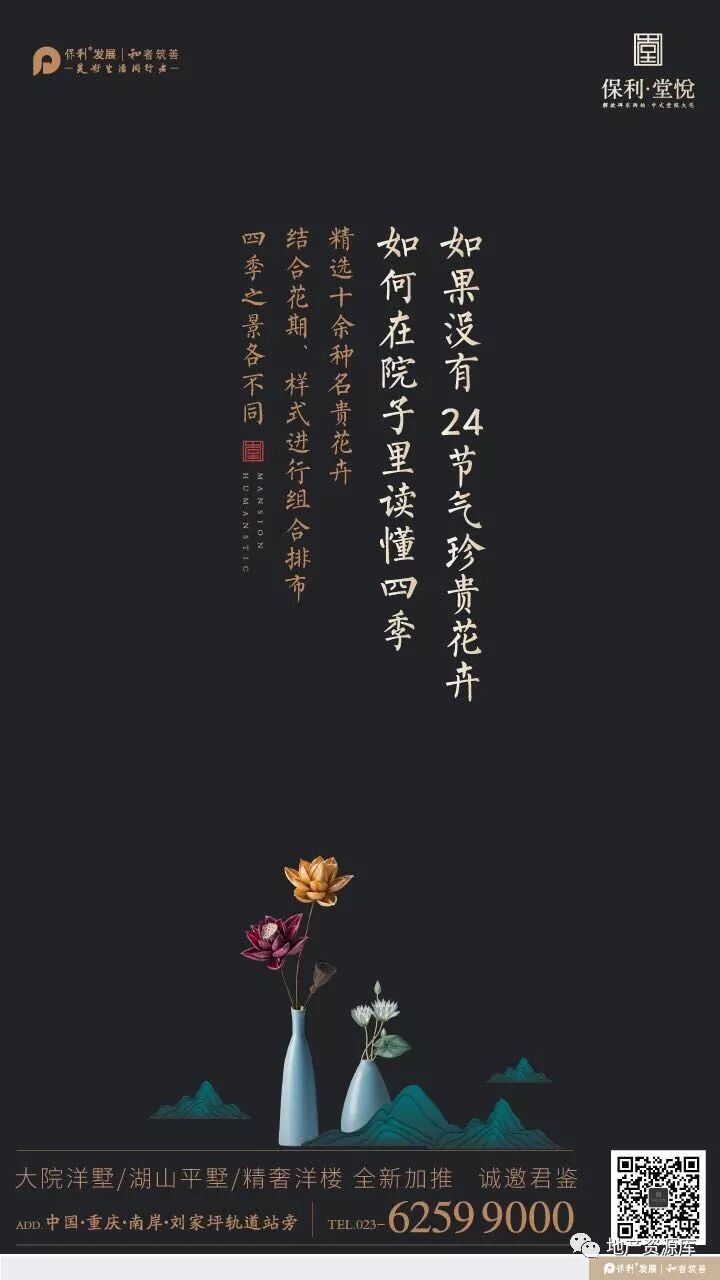 保利发展 | 和者筑善
—美好生活同行者—
堂
保利·堂悦
如果没有24节气珍贵花卉
如何在院子里读懂四季
精选十余种名贵花卉
结合花期、样式进行组合排布
四季之景各不同
堂
MANSION
HUMANSTIC
大院洋墅/湖山平墅/精奢洋楼 全新加推 诚邀君鉴
ADD.中国·重庆·南岸·刘家坪轨道站旁
TEL.023-6259 9000
地产资源库
保利发展 | 和者筑善